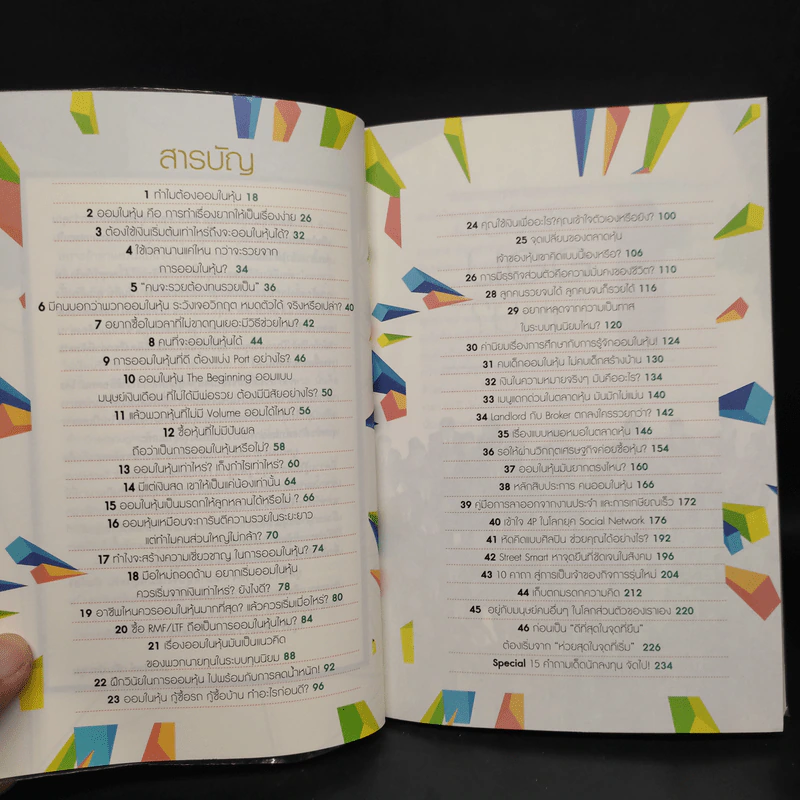 สารบัญ
1 ทำไมต้องออมในหุ้น 18
2 ออมในหุ้น คือ การทำเรื่องยากให้เป็นเรื่องง่าย 26
3 ต้องใช้เงินเริ่มต้นเท่าไหร่ถึงจะออมในหุ้นได้? 32
4 ใช้เวลานานแค่ไหน กว่าจะรวยจาก
การออมในหุ้น? 34
5 "คนจะรวยต้องทนรวยเป็น" 36
6 มีคนบอกว่าพวกออมในหุ้น ระวังเจอวิกฤต หมดตัวได้ จริงหรือเปล่า? 40
7 อยากซื้อในเวลาที่ไม่ขาดทุนเยอะมีวิธีช่วยไหม? 42
8 คนที่จะออมในหุ้นได้ 44
9 การออมในหุ้นที่ดี ต้องแบ่ง Port อย่างไร? 46
10 ออมในหุ้น The Beginning ออมแบบ
มนุษย์เงินเดือน ที่ไม่ได้มีพ่อรวย ต้องมีนิสัยอย่างไร? 50
11 แล้วพวกหุ้นที่ไม่มี Volume ออมได้ไหม? 56
12 ซื้อหุ้นที่ไม่มีปันผล
ถือว่าเป็นการออมในหุ้นหรือไม่? 58
13 ออมในหุ้นเท่าไหร่? เก็งกำไรเท่าไหร่? 60
14 มีแต่เงินสด เขาให้เป็นแค่น้องเท่านั้น 64
15 ออมในหุ้นเป็นมรดกให้ลูกหลานได้หรือไม่ ? 66
16 ออมหุ้นเหมือนจะการันตีความรวยในระยะยาว
แต่ทำไมคนส่วนใหญ่ไม่กล้า? 70
17 ทำไงจะสร้างความเชี่ยวชาญ ในการออมในหุ้น? 74
18 มือใหม่ถอดด้าม อยากเริ่มออมในหุ้น
ควรเริ่มจากเงินเท่าไหร่? ยังไงดี? 78
19 อาชีพไหนควรออมในหุ้นมากที่สุด? แล้วควรเริ่มเมื่อไหร่? 80
20 ซื้อ RMF/LTF ถือเป็นการออมในหุ้นไหม? 84
21 เรื่องออมในหุ้นมันเป็นแนวคิด
ของพวกนายทุนในระบบทุนนิยม 88
22 ฝึกวินัยในการออมหุ้น ไปพร้อมกับการลดน้ำหนัก! 92
23 ออมในหุ้น กู้ซื้อรถ กู้ซื้อบ้าน ทำอะไรก่อนดี? 96
24 คุณใช้เงินเพื่ออะไร?คุณเข้าใจตัวเองหรือยัง? 100
25 จุดเปลี่ยนของตลาดหุ้น
เจ้าของหุ้นเขาคิดแบบนี้เองหรือ? 106
26 การมีธุรกิจส่วนตัวคือความมั่นคงของชีวิต? 110
28 ลูกคนรวยจนได้ ลูกคนจนก็รวยได้ 116
29 อยากหลุดจากความเป็นทาส
ในระบบทุนนิยมไหม? 120
30 ค่านิยมเรื่องการศึกษากับการรู้จักออมในหุ้น! 124
31 คนเด็กออมในหุ้น ไม่คนเด็กสร้างบ้าน 130
32 เงินในความหมายจริงๆ มันคืออะไร? 134
33 เมนูแดกด่วนในตลาดหุ้น มันมักไม่แม่น 140
34 Landlord กับ Broker ตกลงใครรวยกว่า? 142
35 เรื่องแบบหมอหมอในตลาดหุ้น 146
36 รอให้ผ่านวิกฤตเศรษฐกิจค่อยซื้อหุ้น? 154
37 ออมในหุ้นมันยากตรงไหน? 160
38 หลักสิบประการ คนออมในหุ้น 166
39 คู่มือการลาออกจากงานประจำ และการเกษียณเร็ว 172
40 เข้าใจ 4P ในโลกยุค Social Network 176
41 หัดคิดแบบศิลปิน ช่วยคุณได้อย่างไร? 192
42 Street Smart หาจุดยืนที่ชัดเจนในสังคม 196
43 10 คาถา สู่การเป็นเจ้าของกิจการรุ่นใหม่ 204
44 เก็บตกมรดกความคิด 212
45 อยู่กับมนุษย์คนอื่นๆ ในโลกส่วนตัวของเราเอง 220
46 ก่อนเป็น "ดีที่สุดในจุดที่ยืน"
ต้องเริ่มจาก "ห่วยสุดในจุดที่เริ่ม" 226
Special 15 คำถามเด็ดนักลงทุน จัดไป! 234